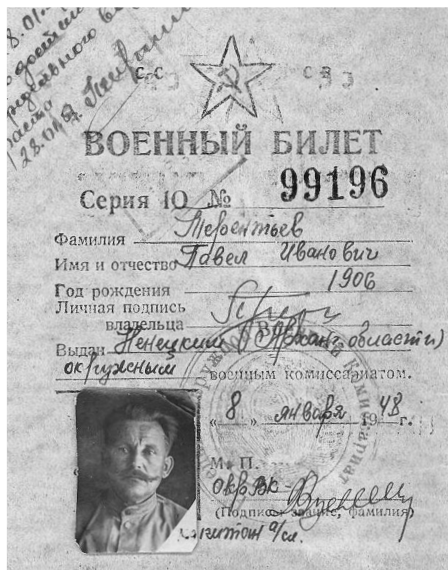 28.01.
предельного
28.01.
С С
С Р
ВОЕННЫЙ БИЛЕТ
Серия Ю № 99196
Фамилия Терентьев
Имя и отчество Павел Иванович
Год рождения 1906
Личная подпись
владельца
Выдан Ненецким (Арханг. области)
окружным военным комиссариатом.
«8» января 1948 г.
М. П.
ОкрВК
(Подпись, звание, фамилия)
капитан а/сл.